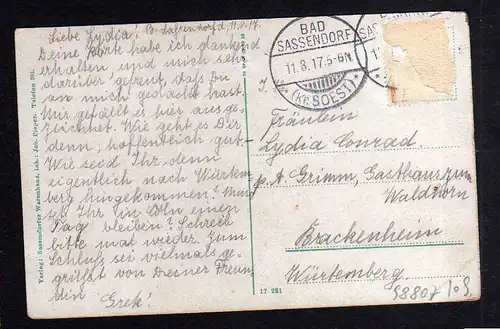 Liebe Lydia! B. Sassendorf d. 11.8.17.
Deine Karte habe ich dankend
erhalten und mich sehr
darüber gefreut, daß Du
an mich gedacht hast.
Mir gefällt es hier ausge-
zeichnet. Wie geht es Dir
denn, hoffentlich gut.
Wie seid Ihr denn
eigentlich nach Würtem-
berg hingekommen? Muß-
tet Ihr in Cöln einen
Tag bleiben? Schreib
bitte mal wieder. Zum
Schluß sei vielmals ge-
grüßt von Deiner Freun-
din Gret!
Verlag: Sassendorfer Warenhaus, Inh.: Joh. Pieper. Telefon
17 291
BAD
SASSENDORF
11.8.17.5-6N
(Kr. SOEST)
SASSENDORF
Fräulein
Lydia Conrad
p. A. Grimm, Gasthaus zum
Waldhorn
Brackenheim
Würtemberg